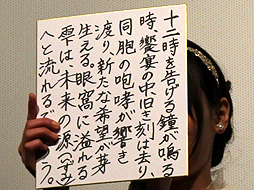 十二時を告げる鐘が鳴る
時、饗宴の中旧き刻は去り、
同胞の咆哮が響き
渡り、新たな希望が芽
生える。眼窩に溢れる
雫は未来の源
へと流れるでしょう。